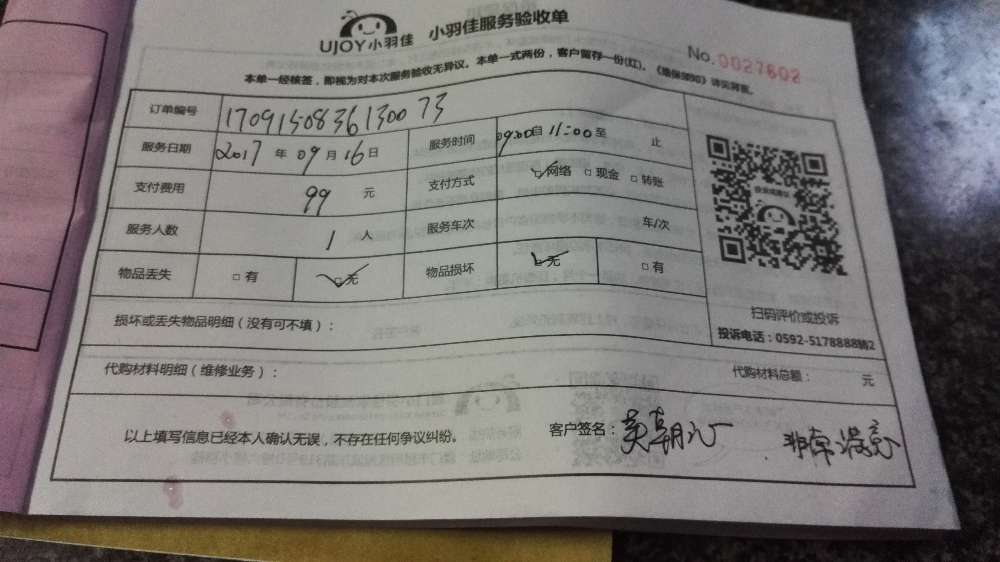 UJOY小羽佳 小羽佳服务验收单
No.0027602
本单一经核签，即视为对本次服务验收无异议。本单一式两份，客户留存一份(红)。《维保须知》详见背面。
订单编号 17091508361300 73
服务日期 2017 年 09 月 16 日 服务时间 09:00 自 11:00 至 止
支付费用 99 元 支付方式 网络 现金 转账
服务人数 1 人 服务车次 车/次
物品丢失 有 无 物品损坏 无 有
扫码评价或投诉
投诉电话：0592-5178888转2
损坏或丢失物品明细（没有可不填）：
代购材料明细（维修业务）： 代购材料总额： 元
以上填写信息已经本人确认无误，不存在任何争议纠纷。 客户签名： 非常满意